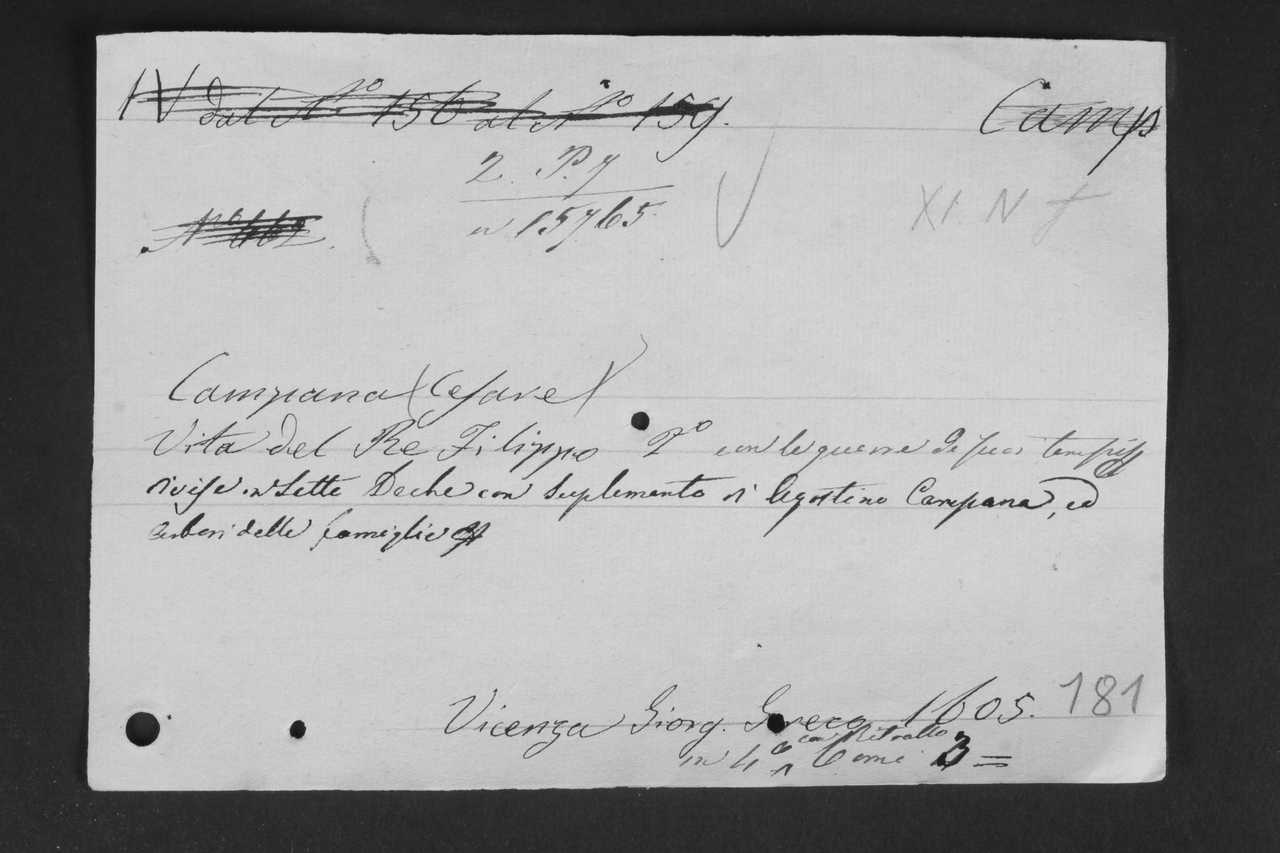 IV dal N.o 156 al N.o 159. Camp
2. P. 7
N.o 662. n 15765 XI. N
Campana (Cesare)
Vita del Re Filippo 2.o con le guerre de suoi tempi
divise in Sette Deche con suplemento di Agostino Campana, ed
arbori delle famiglie
Vicenza Giorg. Greco 1605. 181
con Ritratto
in 4.o Tomi 3=